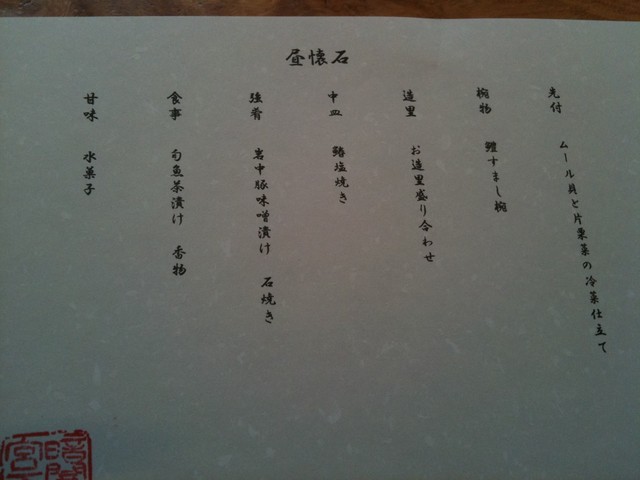 昼懐石
先付 ムール貝と片栗菜の冷菜仕立て
椀物 鱧すまし椀
造里 お造里盛り合わせ
中皿 塩焼き
強肴 岩中豚味噌漬け 石焼き
食事 旬魚茶漬け 香物
甘味 水菓子